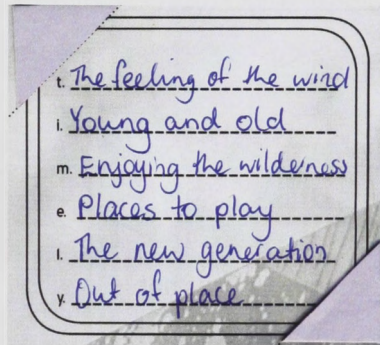 t. The feeling of the wind
i. Young and old
m. Enjoying the wilderness
e. Places to play
l. The new generation
y. Out of place